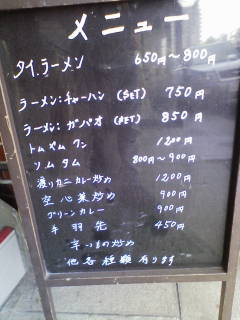 メニュー
タイラーメン 650円〜800円
ラーメン:チャーハン (SET) 750円
ラーメン:ガパオ (SET) 850円
トムヤムクン 1200円
ソムタム 800円〜900円
渡りカニカレー炒め 1200円
空心菜炒め 900円
グリーンカレー 900円
手羽先 450円
炒め
他各種類有ります